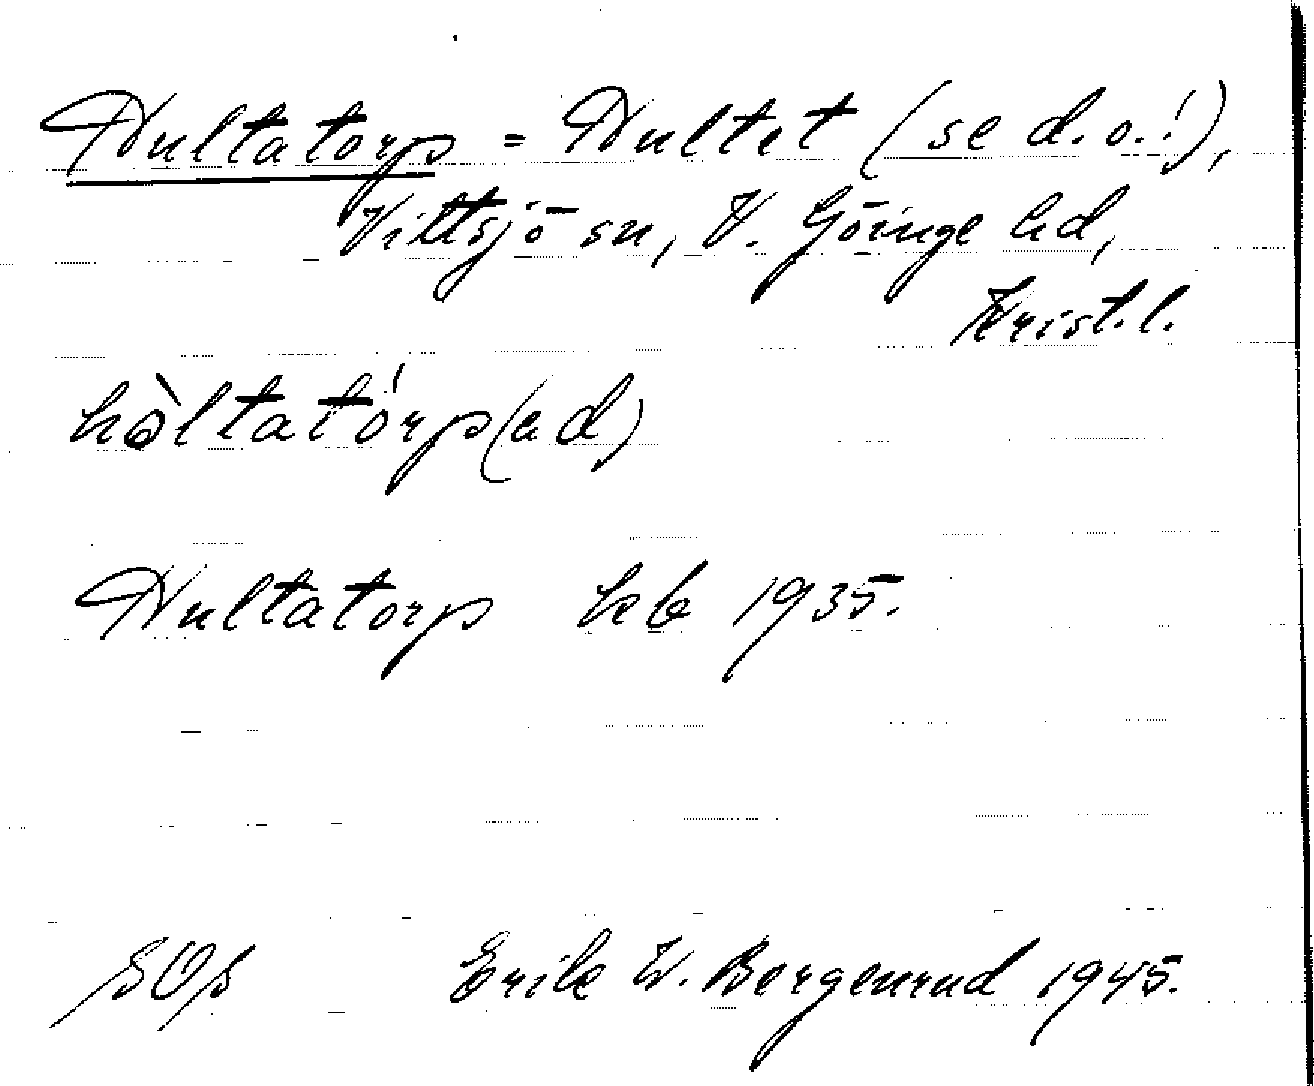 Hultatorp = Hultet (se d.o.!),
Vittsjö sn, V. Göinge hd,
Krist.l.
hòltatórp(ad)
Hultatorp kb 1935.
SOS Erik W. Bergenrud 1945.